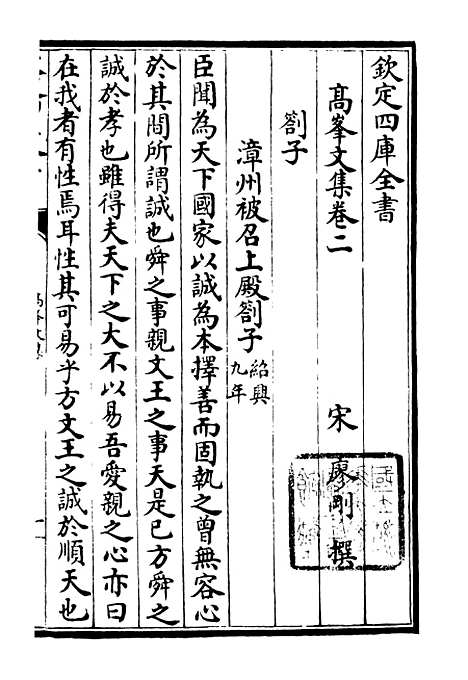 欽定四庫全書
高峯文集卷二
宋 廖剛 撰
劄子
漳州被召上殿劄子紹興九年
臣聞為天下國家以誠為本擇善而固執之曾無容心
於其間所謂誠也舜之事親文王之事天是已方舜之
誠於孝也雖得夫天下之大不以易吾愛親之心亦曰
在我者有性焉耳性其可易乎方文王之誠於順天也